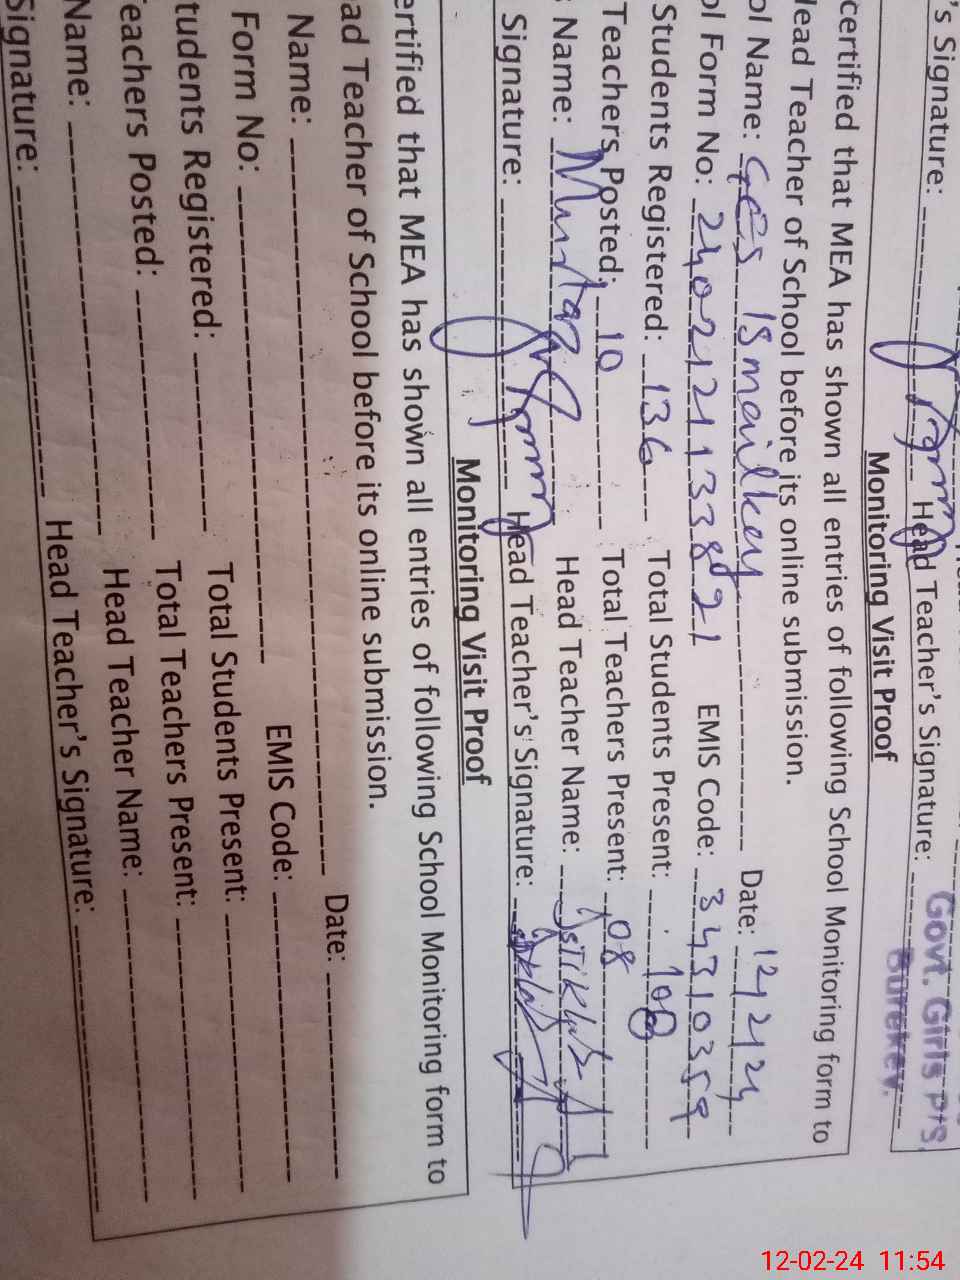 's Signature: Head Teacher's Signature:
Govt. Girls P/S.
Burekey.
Monitoring Visit Proof
certified that MEA has shown all entries of following School Monitoring form to
Head Teacher of School before its online submission.
ol Name: GCS Ismailkey Date: 12/2/24
ol Form No: 240212113382 21 EMIS Code: 34310359
Students Registered: 136 Total Students Present: 108
Teachers Posted: 10 Total Teachers Present: 08
Name: Mumtaz Head Teacher Name:
Signature: Head Teacher's Signature:
Monitoring Visit Proof
ertified that MEA has shown all entries of following School Monitoring form to
ead Teacher of School before its online submission.
Name: Date:
Form No: EMIS Code:
tudents Registered: Total Students Present:
Teachers Posted: Total Teachers Present:
Name: Head Teacher Name:
Signature: Head Teacher's Signature:
12-02-24 11:54